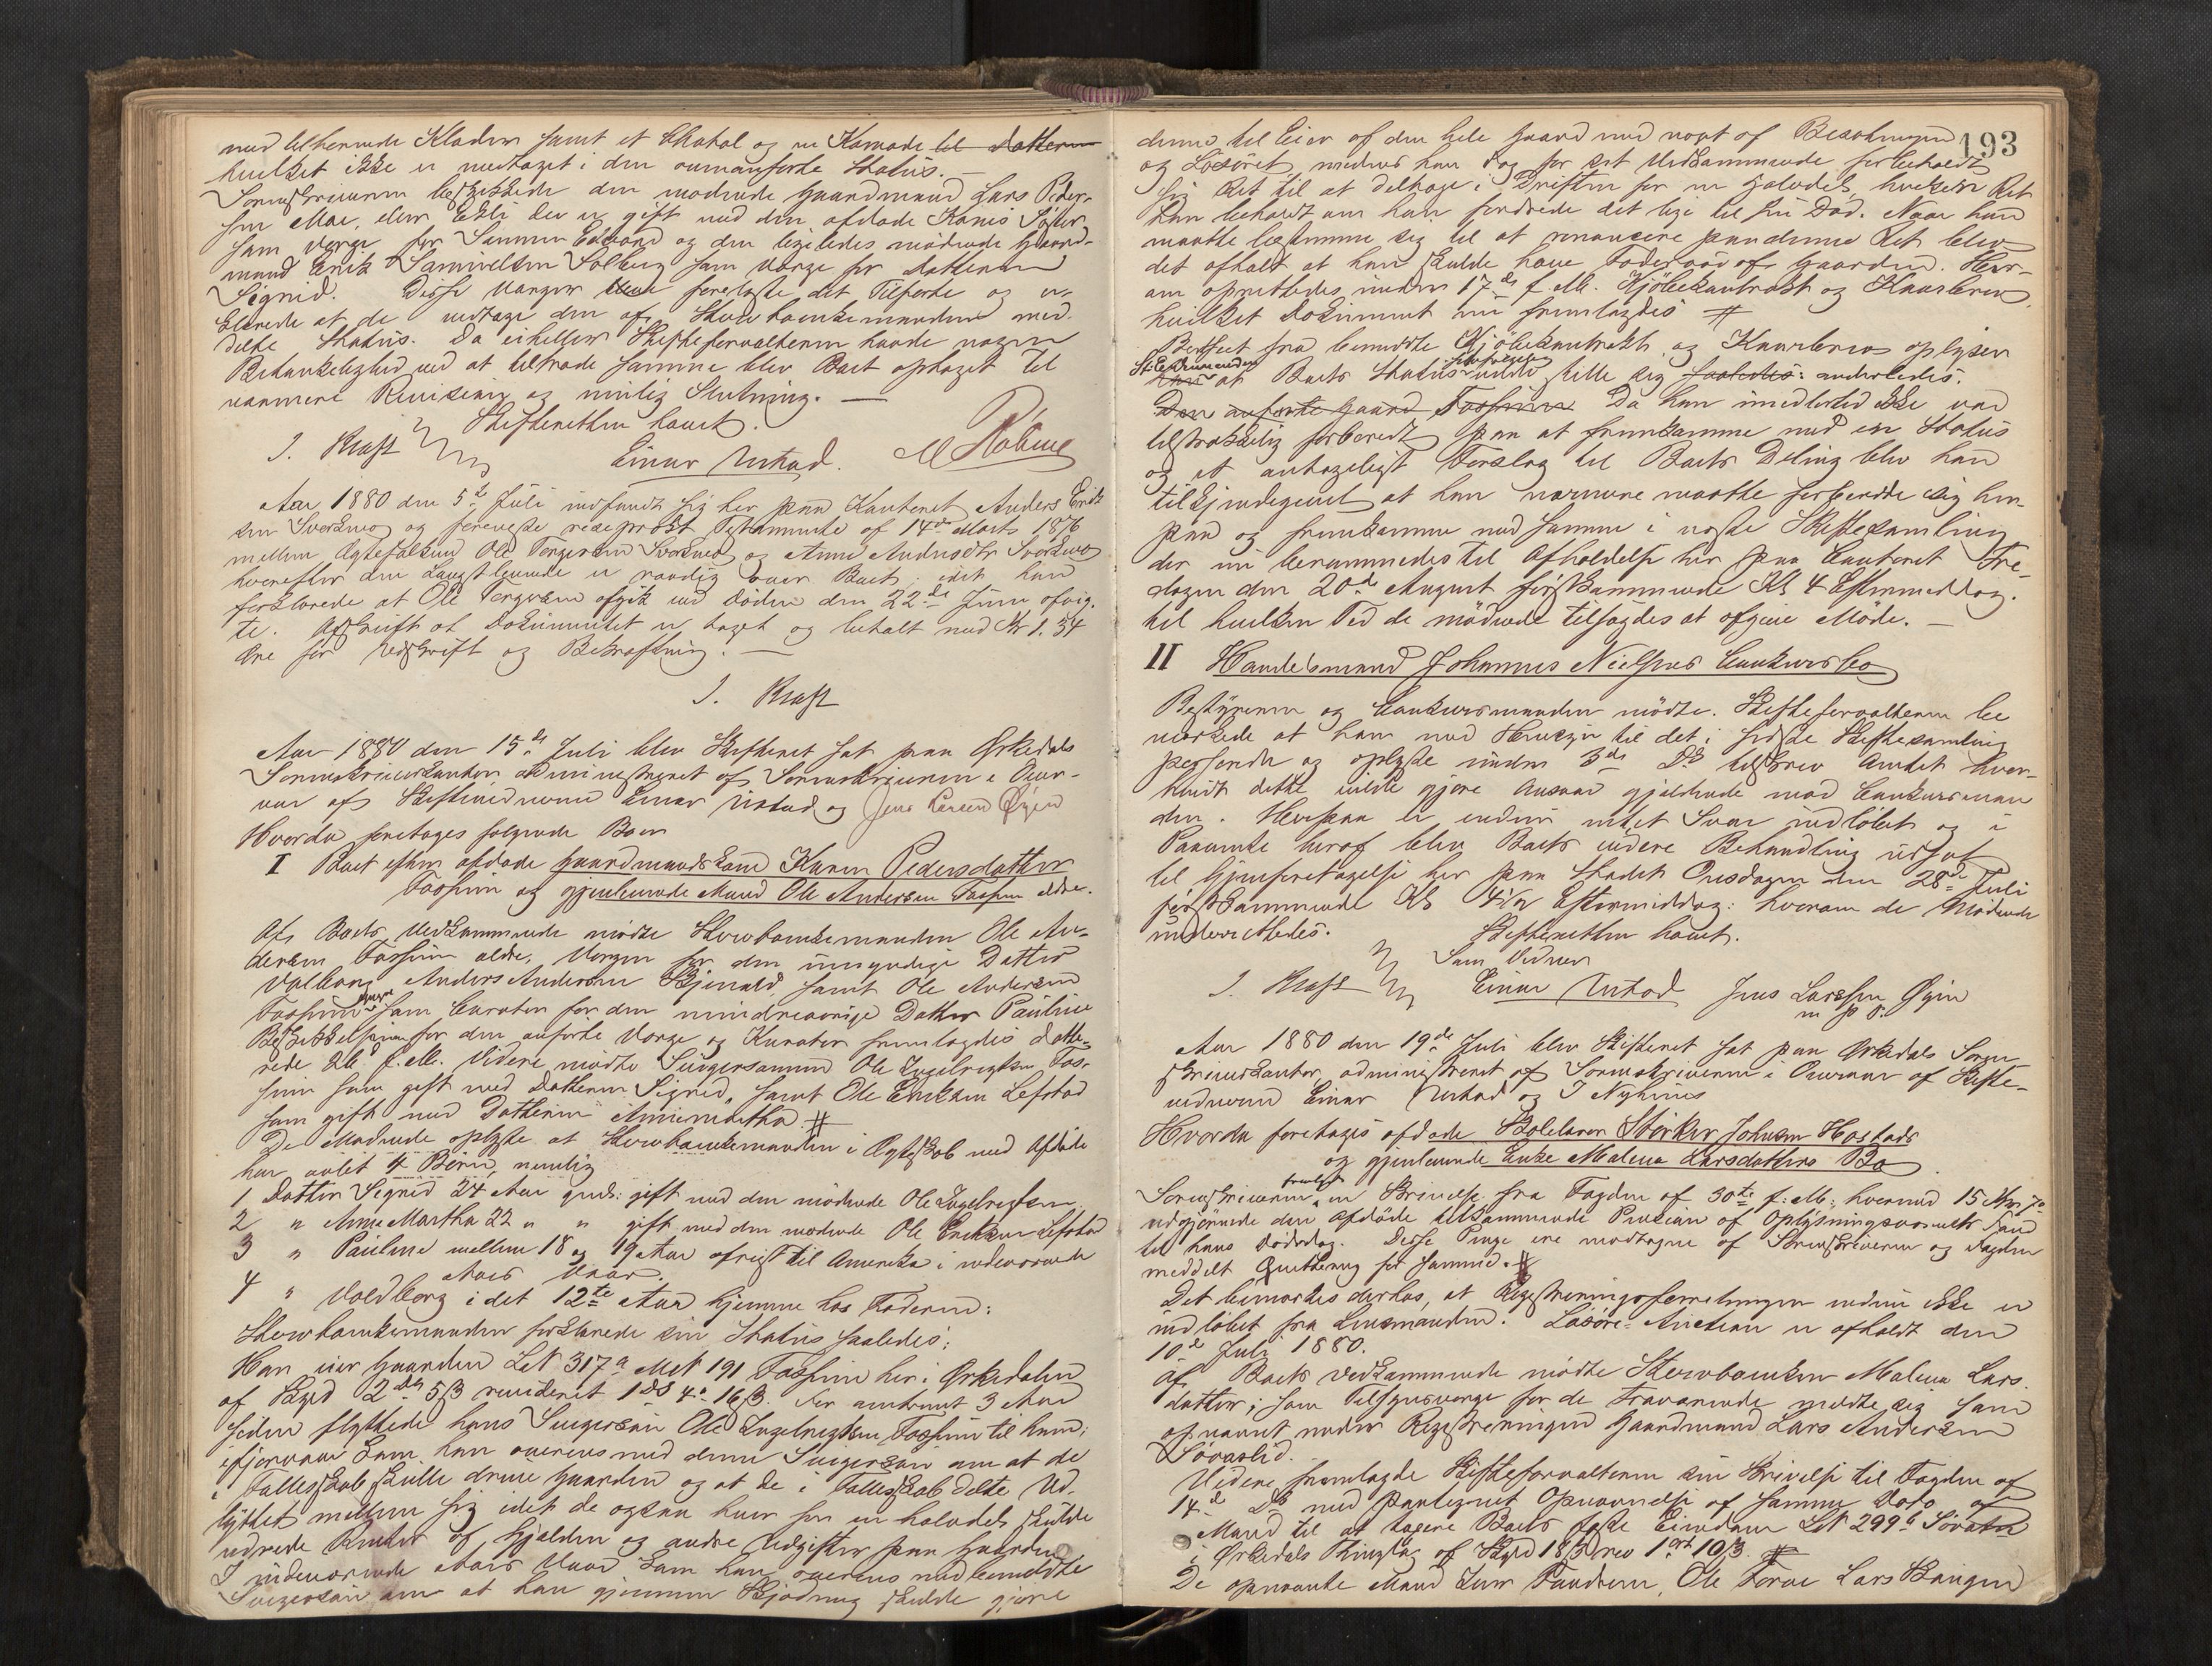 med tilhørende Klæder samt et Chatol og en Komode til Datteren
hvilket ikke er medtaget i den ovenanførte Status. —
Sorenskriveren beskikkede den mødende Gaardmand Lars Peder-
sen Moe, eller Ekli der er gift med den afdøde Kones Søster
som Verge for Sønnen Edvard og den ligeledes mødende Gaard-
mand Erik Samuelsen Solberg som Verge for Datteren
Sigrid. Disse Verger forelæste det Tilførte og er-
klærede at de vedtage den af Stervboenkemanden med-
delte Status. Da eiheller Skifteforvalteren havde nogen
Betænkelighed ved at tiltræde samme blev Boet optaget til
nærmere Revisering og mulig Slutning. —
Skifteretten hævet.
J. Kraft Einar Ustad.
Aar 1880 den 5te Juli indfandt sig her paa Kontoret Anders Erik
sen Svorkmo og foreviste reciproct Testamente af 14de Marts 1876
mellem Ægtefolkene Ole Torgersen Svorkmo og Anne Andersdtr Svorkmo
hvorefter den Længstlevende er raadig over Boet; idet han
forklarede at Ole Torgersen afgik ved Døden den 22de Juni afvig-
te. Afskrift af Dokumentet er taget og betalt med Kr 1. 34
Øre for Udskrift og Bekræftning. —
J. Kraft
Aar 1880 den 15de Juli blev Skifteret sat paa Ørkedals
Sorenskriverkontor administreret af Sorenskriveren i Over-
vær af Skiftevidnerne Einar Ustad og Jens Larsen Øyen
Hvorda foretages følgende Boer
I Boet efter afdøde Gaardmandskone Karen Pedersdatter
Fossum og gjenlevende Mand Ole Andersen Fossum ældre.
Af Boets Vedkommende mødte Stervboenkemanden Ole An-
dersen Fossum ældre, Vergen for den umyndige Datter
Valborg Anders Andersen Skjenald samt Ole Andersen
Fossum yngre som Curator for den mindreaarige Datter Pauline
Beskikkelserne for den anførte Verge og Kurator fremlagdes date-
rede 26 f. M. Videre mødte Svigersønnen Ole Ingebrigtsen Fos-
sum som gift med Datteren Sigrid, samt Ole Eriksen Lefstad
som gift med Datteren Annemartha #
De Mødende oplyste at Stervboenkemanden i Ægteskab med Afdøde
har avlet 4 Børn, nemlig
1 Datter Sigrid 24 Aar gml: gift med den mødende Ole Ingebrigtsen
2 " Anne Martha 22 " " gift med den mødende Ole Eriksen Lefstad
3 " Pauline mellem 18 og 19 Aar afreist til Amerika i indeværende
Aars Vaar.
4 " Voldborg i det 12te Aar hjemme hos Faderen:
Stervboenkemanden forklarede sin Status saaledes:
Han eier Gaarden LN 317a MN 191 Fossum her i Ørkedalen
af Skyld 2 Dlr 5 ß revideret 1 Dlr 4 16 ß. For omtrent 3 Aar
siden flyttede hans Svigersøn Ole Ingebrigtsen Fossum til ham;
ifjorvaar kom han overens med denne Svigersøn om at de
i Fællesskab skulle drive Gaarden og at de i Fællesskab delte Ud-
byttet mellem sig idet de ogsaa hver for en halvdel skulde
udrede Renter af Gjælden og andre Udgifter paa Gaarden
I indeværende Aars Vaar kom han overens med bemeldte
Svigersøn om at han gjennem Skjødning skulde gjøre
193
denne til Eier af den hele Gaard med noget af Besætningen
og Løsøret, medens han dog for sit Vedkommende forbeholdt
sig Ret til at deltage i Driften for en halvdel, hvilken Ret
han beholdt om han fordrede det lige til sin Død. Naar han
maatte bestemme sig til at renoncere paa denne Ret blev
det aftalt at han skulde have Føderaad af Gaarden. Her-
om oprettedes under 17de f. M. Kjøbekontrakt og Kaarbrev
hvilket Dokument nu fremlagdes #
Bortseet fra bemeldte Kjøbekontrakt og Kaarbrev oplyser
at Boets Status vilde stille sig saaledes: anderledes.
Den anførte Gaard Fossum Da han imidlertid ikke var
tilstrækkelig forberedt paa at fremkomme med en Status
og et antageligt Forslag til Boets Deling blev han
tilkjendegivet at han nærmere maatte forberede sig her-
paa og fremkomme med samme i næste Skiftesamling
der nu berammedes til Afholdelse her paa Contoret Fre-
dagen den 20de August førstkommende Kl 4 Eftermiddag.
til hvilken Tid de mødende tilsagdes at afgive Møde. —
II Handelsmand Johannes Nielsens Concursbo
Bestyreren og Concursmanden mødte. Skifteforvalteren be
mærkede at han med Hensyn til det i sidste Skiftesamling
passerede og oplyste under 3de Ds tilskrev Amtet hvor-
vidt dette vilde gjøre Ansvar gjældende mod Concursman
den. Herpaa er endnu intet Svar indløbet og i
Paavente heraf blev Boets videre Behandling udsat
til Gjenforetagelse her paa Stedet Onsdagen den 28de Juli
førstkommende Kl 4 1/2 Eftermiddag: hvorom de Mødende
underrettedes. Skifteretten hævet.
Som Vidner
J. Kraft Einar Ustad Jens Larssen Øyen
m. p. P.
Aar 1880 den 19de Juli blev Skifteret sat paa Ørkedals Soren
skriverkontor, administreret af Sorenskriveren i Overvær af Skifte-
vidnerne Einar Ustad og J Nyhuus
Hvorda foretages afdøde Skolelærer Størker Johnsen Hostads
og gjenlevende Enke Malena Larsdatters Bo
Sorenskriveren fremlagt en Skrivelse fra Fogden af 30te f: M: hvorved 15
udgjørende den Afdøde tilkommende Pension af Oplysningsvæsenets Fond
til hans Dødsdag. Disse Penge ere modtagne af Sorenskriveren og Fogden
meddelt Qvittering for samme. #
Det bemærkes derhos, at Registreringsforretningen endnu ikke er
indløbet fra Lensmanden. Løsøre-Auction er afholdt den
10de Juli 1880.
Af Boets Vedkommende mødte Stervboenken Malena Lars-
datter; som Tilsynsverge for de Fraværende meldte sig som
opnævnt under Registreringen Gaardmand Lars Andersen
Sørøslid.
Videre fremlagde Skifteforvalteren sin Skrivelse til Fogden af
14de Ds med paategnet Opnævnelse af samme Dato af
Mænd til at taxere Boets faste Eiendom LN 299b
i Ørkedals Thinglag af Skyld 18 ß rev 1 ort 10 ß #
De opnævnte Mænd Iver Fandrem, Ole Forve Lars Skaugen